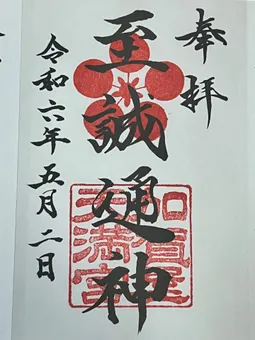 奉拝
至誠通神
令和六年五月二日
加賀屋
天満宮